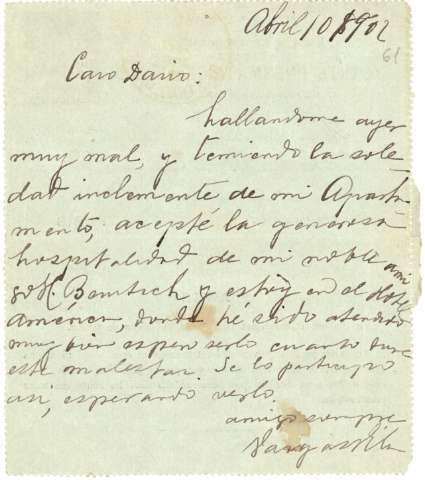 Abril 10 1902
61
Caro Dario:
hallandome ayer
muy mal, y temiendo la sole-
dad inclemente de mi Aparta-
mento, acepté la generosa
hospitalidad de mi noble ami
go H. y estoy en el Hotel
America, donde hé sido atendido
muy bien espero serlo cuanto dure
este malestar. Se lo participo
asi, esperando verlo.
amigo siempre
Vargas Vila